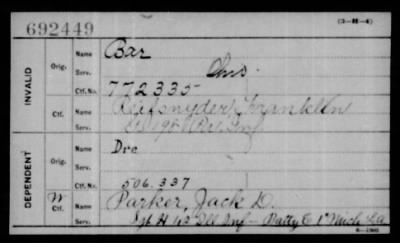 (3-H-4)
692449
INVALID
Orig.
Name
Bar
Serv.
Chas.
Ctf. No.
772335
Ctf.
Name
Reifsnyder, Franklin
Serv.
198 Pa. Inf
DEPENDENT
Orig.
Name
Dre
Serv.
Ctf. No.
506.337
W
Ctf.
Name
Parker, Jack D.
Serv.
Sgt H 43 Ill Inf - Batty C 1" Mich L A